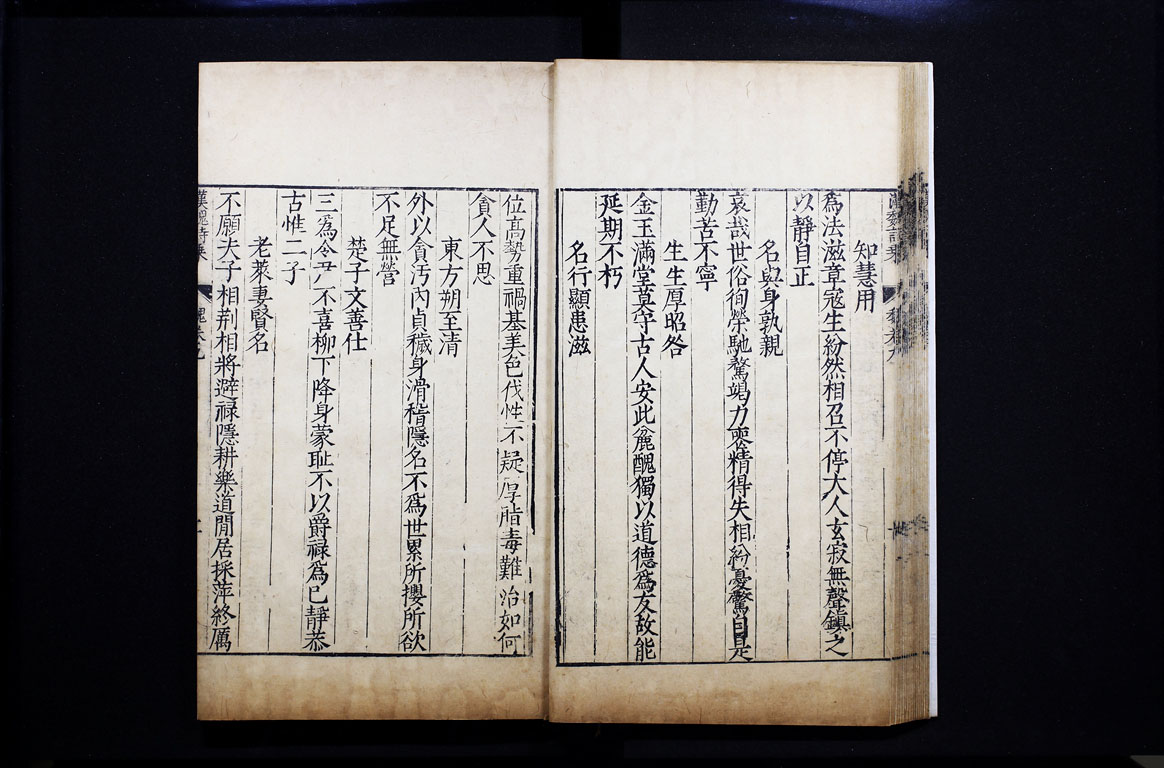 知慧用
為法滋章寇生紛然相召不停大人玄寂無聲鎮之
以靜自正
名與身孰親
哀哉世俗徇榮馳騖竭力喪精得失相紛憂驚自是
勤苦不寧
生生厚招咎
金玉滿堂莫守古人安此麄醜獨以道德為友故能
延期不朽
名行顯患滋
位高勢重禍基美色伐性不疑厚脂毒難治如何
貪人不思
東方朔至清
外以貪汚內貞穢身滑稽隱名不為世累所攖所欲
不足無營
楚子文善仕
三為令尹不喜柳下降身蒙耻不以爵祿為已靜恭
古惟二子
老萊妻賢名
不願夫子相荆相將避祿隱耕樂道閒居採萍終厲
漢魏詩乘
魏卷九